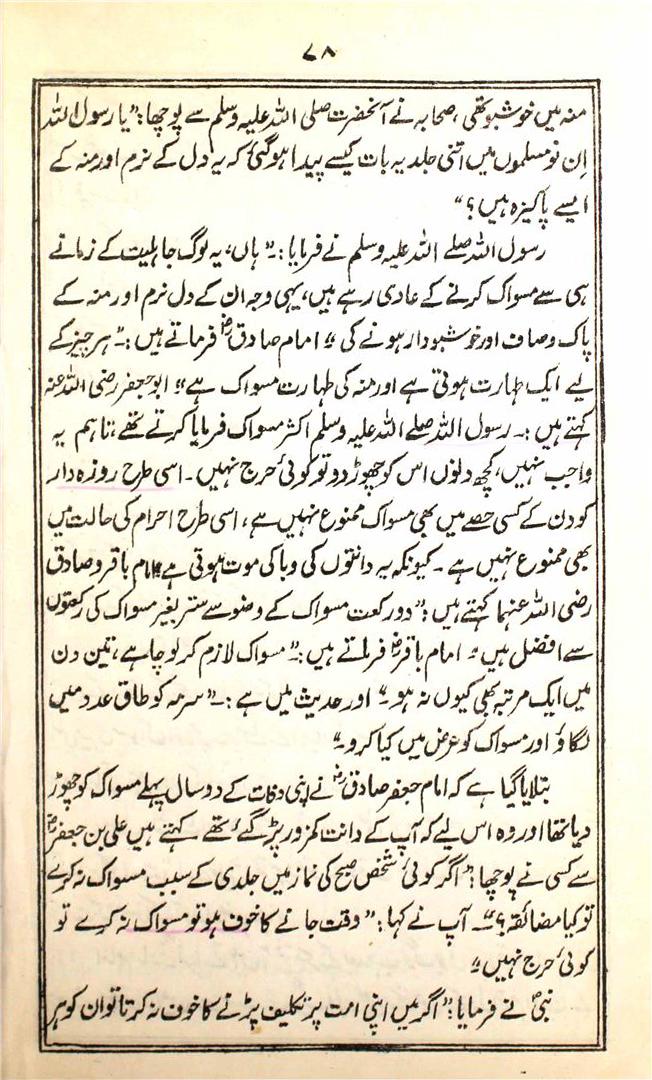 ۷۸
منہ میں خوشبو تھی، صحابہ نے آنحضرت صلی اللہ علیہ وسلم سے پوچھا: "یا رسول اللہ
اِن نومسلموں میں اتنی جلد یہ بات کیسے پیدا ہوگئی کہ یہ دل کے نرم اور منہ کے
ایسے پاکیزہ ہیں؟"
رسول اللہ صلے اللہ علیہ وسلم نے فرمایا:۔ "ہاں، یہ لوگ جاہلیت کے زمانے
ہی سے مسواک کرنے کے عادی رہے ہیں، یہی وجہ ان کے دل نرم اور منہ کے
پاک وصاف اور خوشبودار ہونے کی" امام صادقؓ فرماتے ہیں:۔ "ہر چیز کے
لیے ایک طہارت ہوتی ہے اور منہ کی طہارت مسواک ہے" ابوجعفر رضی اللہ عنہ
کہتے ہیں:۔ رسول اللہ صلے اللہ علیہ وسلم اکثر مسواک فرمایا کرتے تھے، تاہم یہ
واجب نہیں، کچھ دلوں اس کو چھوڑ دو تو کوئی حرج نہیں۔ اسی طرح روزہ دار
کو دن کے کسی حصے میں بھی مسواک ممنوع نہیں ہے، اسی طرح احرام کی حالت میں
بھی ممنوع نہیں ہے۔ کیونکہ یہ دانتوں کی وبا کی موت ہوتی ہے" امام باقر و صادق
رضی اللہ عنہما کہتے ہیں: "دو رکعت مسواک کے وضو سے ستر بغیر مسواک کی رکعتوں
سے افضل ہیں" امام باقرؓ فرماتے ہیں:۔ "مسواک لازم کر لو چاہے، تین دن
میں ایک مرتبہ بھی کیوں نہ ہو" اور حدیث میں ہے:۔ "سرمہ کو طاق عدد میں
لگاؤ اور مسواک کو عرض میں کیا کرو"
بتلایا گیا ہے کہ امام جعفر صادقؓ نے اپنی وفات کے دو سال پہلے مسواک کو چھوڑ
دیا تھا اور وہ اس لیے کہ آپ کے دانت کمزور پڑ گئے تھے کہتے ہیں علی بن جعفرؓ
سے کسی نے پوچھا: "اگر کوئی شخص صبح کی نماز میں جلدی کے سبب مسواک نہ کرے
تو کیا مضائقہ؟" آپ نے کہا: "وقت جانے کا خوف ہو تو مسواک نہ کرے تو
کوئی حرج نہیں"
نبیؐ نے فرمایا: "اگر میں اپنی امت پر تکلیف پڑنے کا خوف نہ کرتا تو ان کو ہر